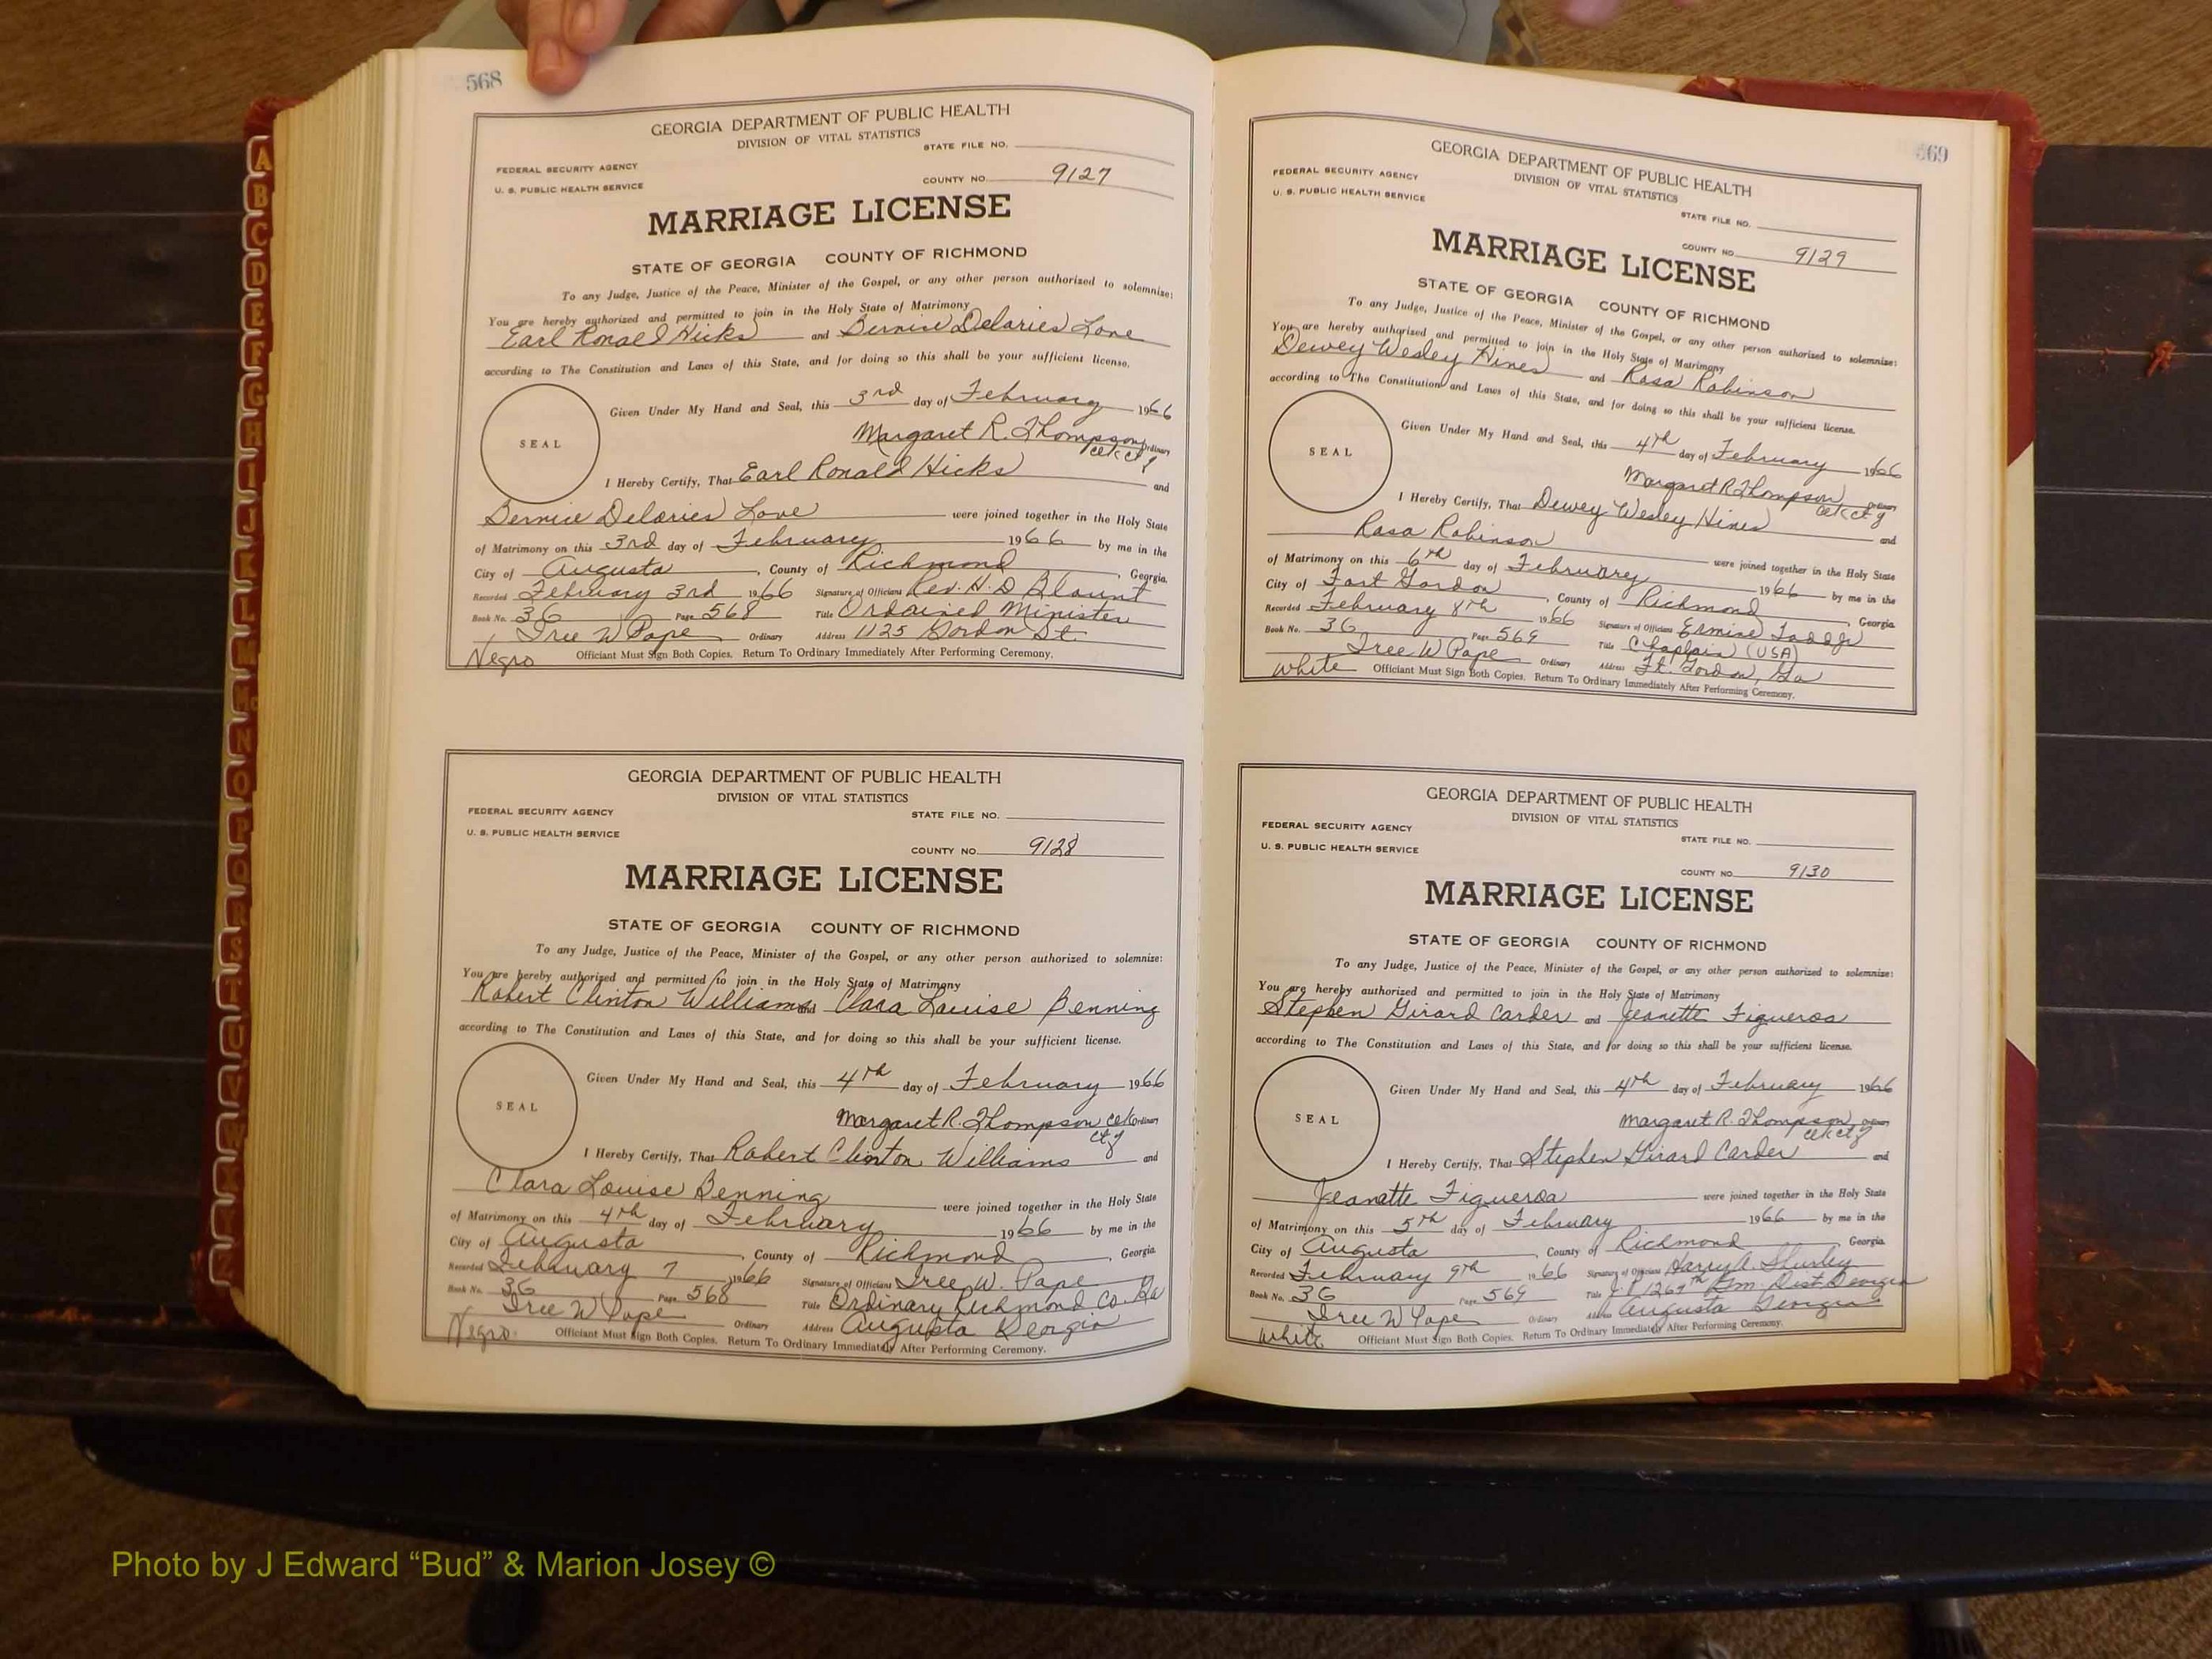 568
GEORGIA DEPARTMENT OF PUBLIC HEALTH
DIVISION OF VITAL STATISTICS
STATE FILE NO.
FEDERAL SECURITY AGENCY
U. S. PUBLIC HEALTH SERVICE
COUNTY NO. 9127
MARRIAGE LICENSE
STATE OF GEORGIA COUNTY OF RICHMOND
To any Judge, Justice of the Peace, Minister of the Gospel, or any other person authorized to solemnize:
You are hereby authorized and permitted to join in the Holy State of Matrimony
Earl Ronald Hicks and Bernice Delories Love
according to The Constitution and Laws of this State, and for doing so this shall be your sufficient license.
SEAL
Given Under My Hand and Seal, this 3rd day of February 1966
Margaret R. Thompson Ordinary
clk ct
I Hereby Certify, That Earl Ronald Hicks and
Bernice Delories Love were joined together in the Holy State
of Matrimony on this 3rd day of February 1966 by me in the
City of Augusta, County of Richmond, Georgia.
Recorded February 3rd 1966 Signature of Officiant Rev. H. D Blount
Book No. 36 Page 568 Title Ordained Minister
Tree W Pope Ordinary Address 1125 Gordon St.
Negro Officiant Must Sign Both Copies. Return To Ordinary Immediately After Performing Ceremony.
GEORGIA DEPARTMENT OF PUBLIC HEALTH
DIVISION OF VITAL STATISTICS
STATE FILE NO.
FEDERAL SECURITY AGENCY
U. S. PUBLIC HEALTH SERVICE
COUNTY NO. 9128
MARRIAGE LICENSE
STATE OF GEORGIA COUNTY OF RICHMOND
To any Judge, Justice of the Peace, Minister of the Gospel, or any other person authorized to solemnize:
You are hereby authorized and permitted to join in the Holy State of Matrimony
Robert Clinton Williams and Clara Louise Benning
according to The Constitution and Laws of this State, and for doing so this shall be your sufficient license.
SEAL
Given Under My Hand and Seal, this 4th day of February 1966
Margaret R. Thompson clk Ordinary
ct
I Hereby Certify, That Robert Clinton Williams and
Clara Louise Benning were joined together in the Holy State
of Matrimony on this 4th day of February 1966 by me in the
City of Augusta, County of Richmond, Georgia.
Recorded February 7 1966 Signature of Officiant Tree W. Pope
Book No. 36 Page 568 Title Ordinary Richmond Co. Ga
Tree W Pope Ordinary Address Augusta Georgia
Negro Officiant Must Sign Both Copies. Return To Ordinary Immediately After Performing Ceremony.
569
GEORGIA DEPARTMENT OF PUBLIC HEALTH
DIVISION OF VITAL STATISTICS
FEDERAL SECURITY AGENCY
U. S. PUBLIC HEALTH SERVICE
STATE FILE NO.
COUNTY NO. 9129
MARRIAGE LICENSE
STATE OF GEORGIA COUNTY OF RICHMOND
To any Judge, Justice of the Peace, Minister of the Gospel, or any other person authorized to solemnize:
You are hereby authorized and permitted to join in the Holy State of Matrimony
Dewey Wesley Hines and Rosa Robinson
according to The Constitution and Laws of this State, and for doing so this shall be your sufficient license.
SEAL
Given Under My Hand and Seal, this 4th day of February 1966
Margaret R. Thompson Ordinary
clk ct
I Hereby Certify, That Dewey Wesley Hines and
Rosa Robinson were joined together in the Holy State
of Matrimony on this 6th day of February 1966 by me in the
City of Fort Gordon, County of Richmond, Georgia.
Recorded February 8th 1966 Signature of Officiant Ermine
Book No. 36 Page 569 Title Chaplain (USA)
Tree W Pope Ordinary Address Ft. Gordon, Ga
White Officiant Must Sign Both Copies. Return To Ordinary Immediately After Performing Ceremony.
GEORGIA DEPARTMENT OF PUBLIC HEALTH
DIVISION OF VITAL STATISTICS
FEDERAL SECURITY AGENCY
U. S. PUBLIC HEALTH SERVICE
STATE FILE NO.
COUNTY NO. 9130
MARRIAGE LICENSE
STATE OF GEORGIA COUNTY OF RICHMOND
To any Judge, Justice of the Peace, Minister of the Gospel, or any other person authorized to solemnize:
You are hereby authorized and permitted to join in the Holy State of Matrimony
Stephen Girard Carder and Jeanette Figueroa
according to The Constitution and Laws of this State, and for doing so this shall be your sufficient license.
SEAL
Given Under My Hand and Seal, this 4th day of February 1966
Margaret R. Thompson Ordinary
clk ct
I Hereby Certify, That Stephen Girard Carder and
Jeanette Figueroa were joined together in the Holy State
of Matrimony on this 5th day of February 1966 by me in the
City of Augusta, County of Richmond, Georgia.
Recorded February 9th 1966 Signature of Officiant Harry A. Shurley
Book No. 36 Page 569 Title J.P. 1269th Gm. Dist Georgia
Tree W Pope Ordinary Address Augusta Georgia
White Officiant Must Sign Both Copies. Return To Ordinary Immediately After Performing Ceremony.
A
B
C
D
E
F
G
H
I
J
K
L
M
Mc
N
O
P
Q
R
S
T
U
V
W
X
Y
Z
Photo by J Edward “Bud” & Marion Josey ©